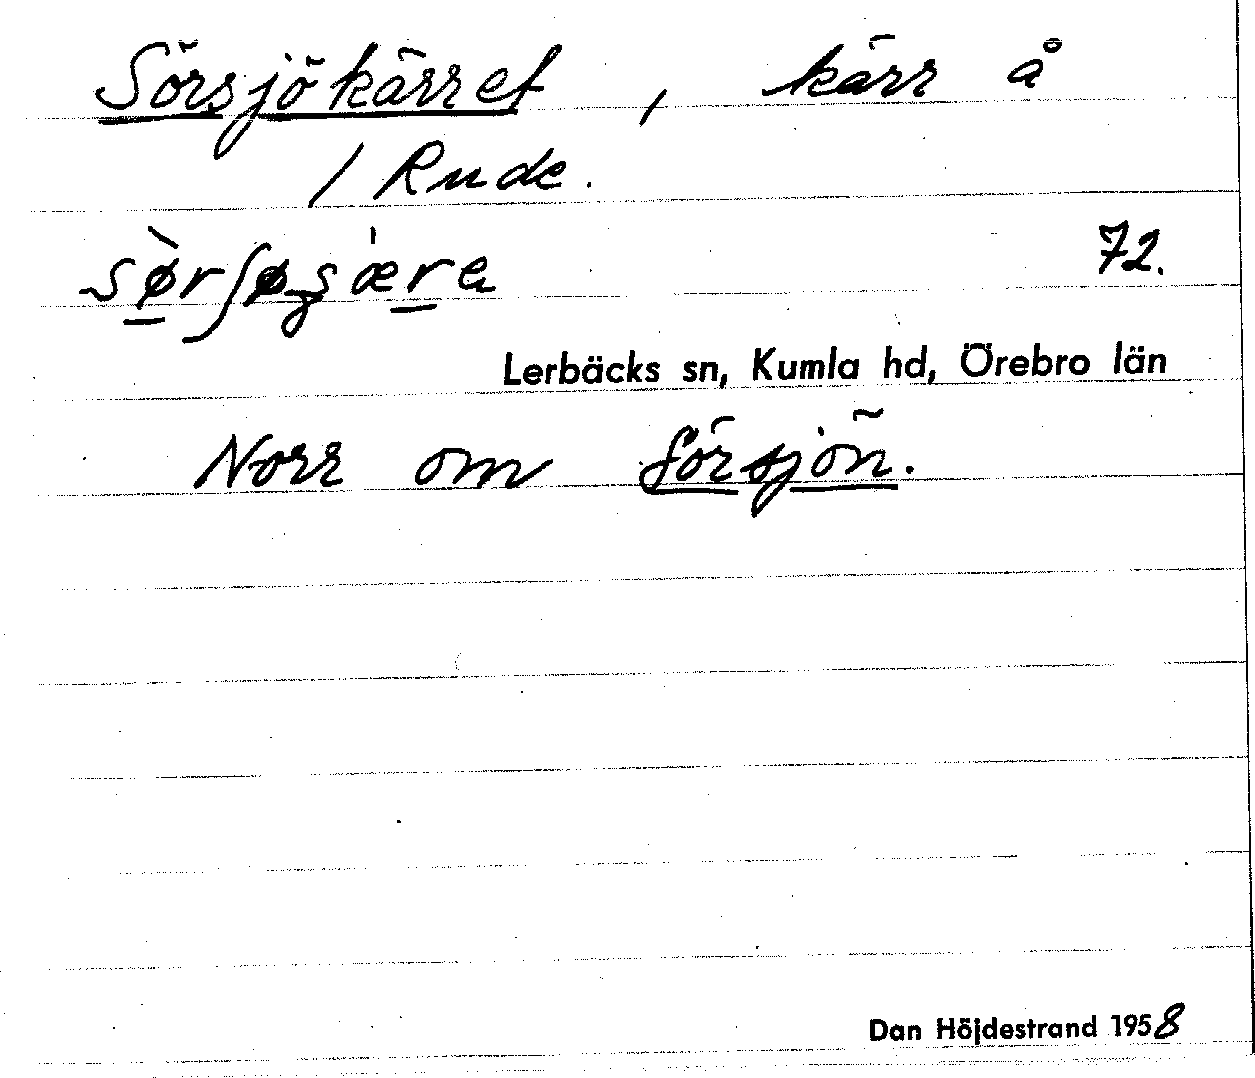 Sörsjökärret, kärr å
/ Rude.
72.
Lerbäcks sn, Kumla hd, Örebro län
Norr om Sörsjön.
Dan Höjdestrand 1958